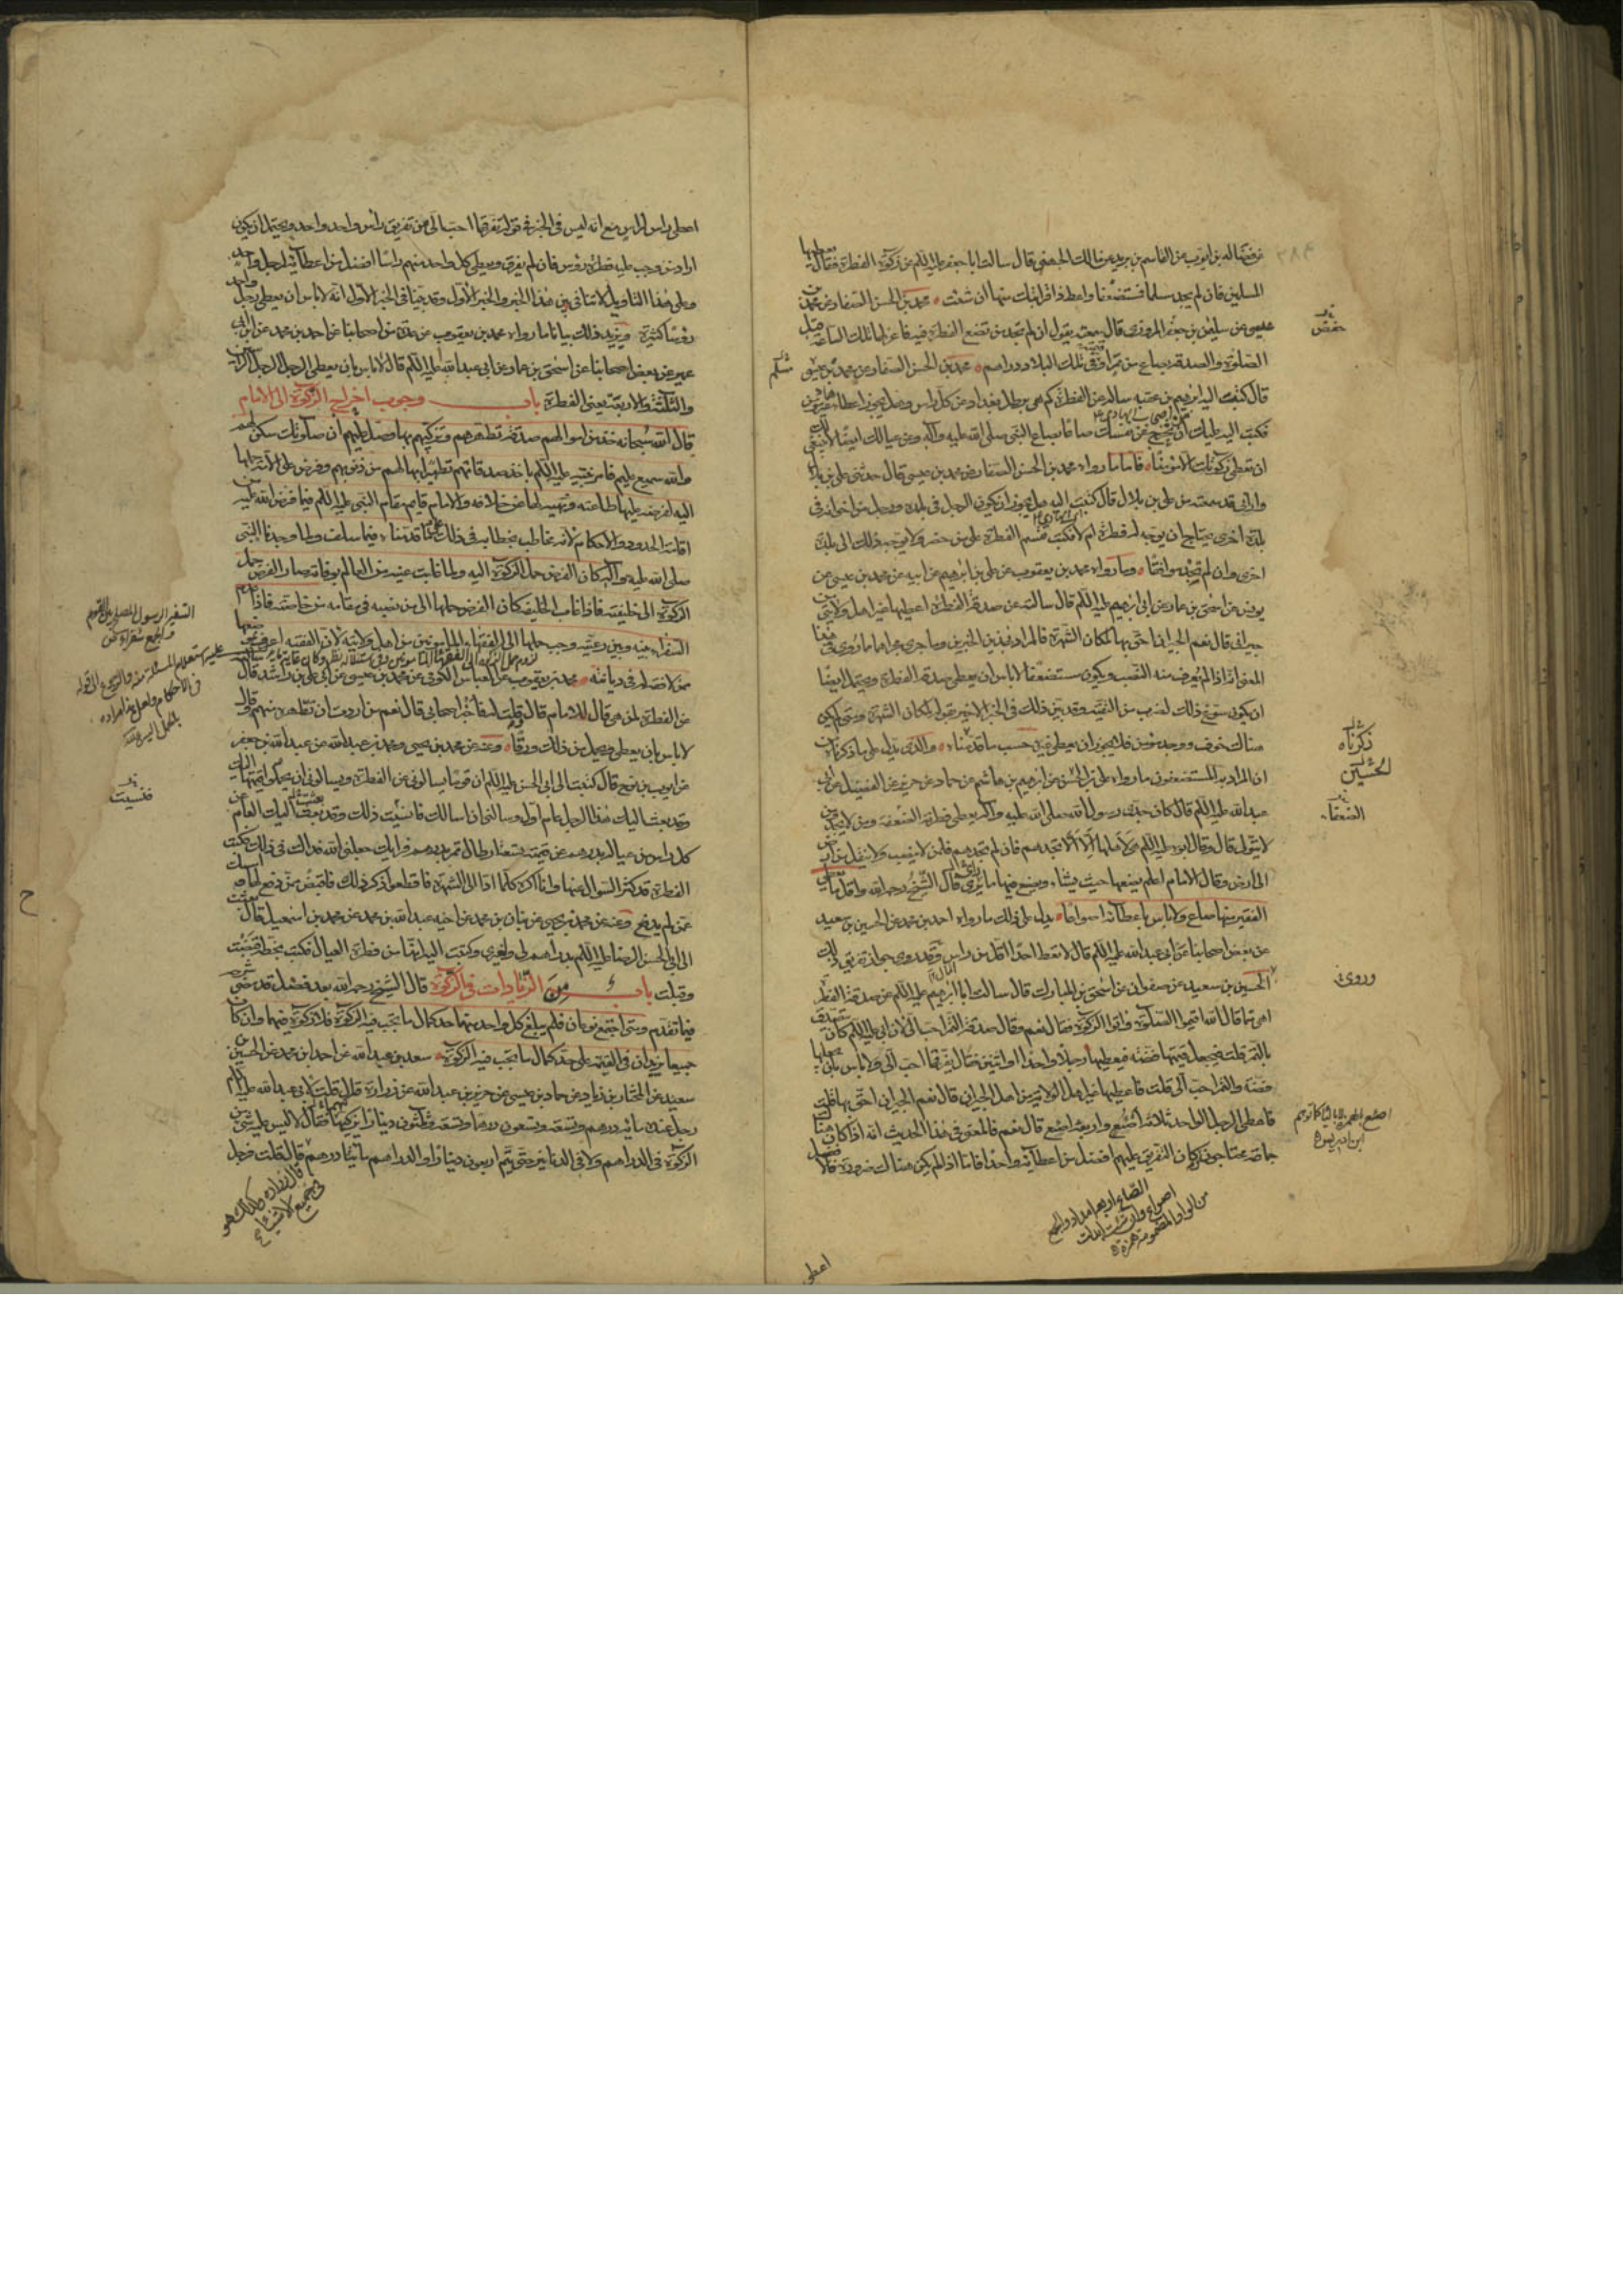 عن فضالة بن ايوب عن القاسم بن بريد عن مالك الجهني قال سالت ابا جعفر عليه السلم عن زكوة الفطرة فقال تعطيها
المسلمين فان لم تجد مسلما فمستضعفا واعط ذا قرابتك منها ان شئت محمد بن الحسن الصفار عن محمد بن
عيسى عن سليمن بن جعفر المروزي قال سمعته يقول ان لم تجد من تضع الفطرة فيه فاعزلها تلك الساعة قبل
الصلوة والصدقة بصاع من تمر او قيمته في تلك البلاد دراهم محمد بن الحسن الصفار عن محمد بن عيسى
قال كتب اليه ابرهيم بن عقبة يساله عن الفطرة كم هي برطل بغداد عن كل راس وهل يجوز اعطاؤها غير مؤمن
فكتب اليه عليك ان تخرج عن نفسك صاعا بصاع النبي صلى الله عليه وآله وعن عيالك ايضا لا ينبغي لك
ان تعطي زكوتك الا مؤمنا فاما ما رواه محمد بن الحسن الصفار عن محمد بن عيسى قال حدثني علي بن بلال
واراني قد سمعته من علي بن بلال قال كتبت اليه هل يجوز ان يكون الرجل في بلدة ورجل من اخوانه في
بلدة اخرى يحتاج ان يوجه له فطرة ام لا فكتب تقسم الفطرة على من حضر ولا يوجه ذلك الى بلدة
اخرى وان لم تجد موافقا وما رواه محمد بن يعقوب عن علي بن ابرهيم عن ابيه عن محمد بن عيسى عن
يونس عن اسحق بن عمار عن ابي ابرهيم عليه السلم قال سالته عن صدقة الفطرة اعطيها غير اهل ولايتي من
جيراني قال نعم الجيران احق بها لمكان الشهرة فالمراد بهذين الخبرين وما جرى مجراهما مما روي في هذا
المعنى انه اذا لم يعرف منه النصب ويكون مستضعفا لا باس ان يعطى صدقة الفطرة ويحتمل ايضا
ان يكون سوغ ذلك لضرب من التقية وقد بين ذلك في الخبر الاخير بقوله لمكان الشهرة ومتى لم يكن
هناك خوف ووجد مؤمن فلا يجوز ان يعطى غيره حسب ما قدمناه والذي يدل على ما ذكرناه من
ان المراد به المستضعفون ما رواه علي بن الحسن عن ابرهيم بن هاشم عن حماد عن حريز عن الفضيل عن ابي
عبد الله عليه السلم قال كان جدي رسول الله صلى الله عليه وآله يعطي فطرته الضعفة ومن لا يجد ومن
لا يتولى قال وقال ابوه عليه السلم هي لاهلها الا ان لا تجدهم فان لم تجدهم فلمن لا ينصب ولا تنقل من ارض
الى ارض وقال الامام اعلم يضعها حيث يشاء ويصنع فيها ما يرى قال الشيخ رحمه الله واقل ما يعطى
الفقير منها صاع ولا باس باعطائه اصواعا يدل على ذلك ما رواه احمد بن محمد عن الحسين بن سعيد
عن بعض اصحابنا عن ابي عبد الله عليه السلم قال لا تعط احدا اقل من راس وقد روى جواز تفريق ذلك
الحسين بن سعيد عن صفوان عن اسحق بن المبارك قال سالت ابا ابرهيم عليه السلم عن صدقة الفطرة
اهي مما قال الله اقيموا الصلوة واتوا الزكوة فقال نعم وقال صدقة التمر احب الي لان ابي عليه السلم كان يتصدق
بالتمر قلت فيجعل قيمتها فضة فيعطيها رجلا واحدا او اثنين فقال يفرقها احب الي ولا باس بان يجعلها
فضة والتمر احب الي قلت فاعطيها غير اهل الولاية من اهل الجيران قال نعم الجيران احق بها قلت
فاعطي الرجل الواحد ثلاثة اصوع واربعة اصوع قال نعم فالمعنى في هذا الحديث انه اذا كان هناك
جماعة محتاجون كان التفريق عليهم افضل من اعطائه واحدا فاما اذا لم يكن هناك ضرورة فالافضل
حفص
ذكرناه
الحسين
الضعفاء
وروى
الصاع اربعة امداد والجمع
اصوع وان شئت ابدلت
من الواو المضمومة همزة
اعطى
اعطى راس لراس مع انه ليس في الخبر في قوله تفرقها احب الي من تفريق راس واحد واحد ويحتمل ان يكون
اراد من وجب عليه فطرة رؤس فان لم يفرق ويعطي كل واحد منهم راسا افضل من اعطائه لرجل واحد
وعلى هذا التاويل لا تنافي بين هذا الخبر والخبر الاول وقد بينا في الخبر الاول انه لا باس ان يعطى رجل واحد
رؤسا كثيرة ويزيد ذلك بيانا ما رواه محمد بن يعقوب عن عدة من اصحابنا عن احمد بن محمد عن ابن ابي
عمير عن بعض اصحابنا عن اسحق بن عمار عن ابي عبد الله عليه السلم قال لا باس بان يعطي الرجل الرجل الراسين
والثلثة والاربعة يعني الفطرة باب وجوب اخراج الزكوة الى الامام
قال الله سبحانه خذ من اموالهم صدقة تطهرهم وتزكيهم بها وصل عليهم ان صلوتك سكن لهم
والله سميع عليم فامر نبيه عليه السلم باخذ صدقاتهم تطهيرا لهم من ذنوبهم وفرض على الامة حملها
اليه لفرضه عليها طاعته ونهيه لها عن خلافه والامام قايم مقام النبي عليه السلم فيما فرض الله عليه من
اقامة الحدود والاحكام لانه مخاطب بخطابه في ذلك على ما قدمناه فيما سلف ولما وجدنا النبي
صلى الله عليه وآله كان الفرض حمل الزكوة اليه ولما غابت عينه من العالم بوفاته صار الفرض حمل
الزكوة الى خليفته فاذا غاب الخليفة كان الفرض حملها الى من نصبه في مقامه من خاصته فاذا عدم
السفراء بينه وبين رعيته وجب حملها الى الفقهاء المامونين من اهل ولايته لان الفقيه اعرف بموضعها
ممن لا فقه له في ديانته محمد بن يعقوب عن ابي العباس الكوفي عن محمد بن عيسى عن ابي علي بن راشد قال سالته
عن الفطرة لمن هي قال للامام قال قلت له فاخبر اصحابي قال نعم من اردت ان تطهره منهم وقال
لا باس بان يعطي ويحمل ثمن ذلك ورقا وعنه عن محمد بن يحيى ومحمد بن عبد الله عن عبد الله بن جعفر
عن ايوب بن نوح قال كتبت الى ابي الحسن عليه السلم ان قوما يسالوني عن الفطرة ويسالوني ان يحملوا قيمتها اليك
وقد بعث اليك هذا الرجل عام اول وسالني ان اسالك فانسيت ذلك وقد بعثت اليك العام عن
كل راس من عياله بدرهم عن قيمة تسعة ارطال تمر بدرهم فرايك جعلني الله فداك في ذلك فكتب
الفطرة قد كثر السؤال عنها وانا اكره كلما ادى الى الشهرة فاقطعوا ذكر ذلك فاقبض ممن دفع لها وامسك
عمن لم يدفع وعنه عن محمد بن يحيى عن بنان بن محمد عن اخيه عبد الله بن محمد عن محمد بن اسمعيل قال بعثت
الى ابي الحسن الرضا عليه السلم بدراهم لي ولغيري وكتبت اليه انها من فطرة العيال فكتب بخطه قبضت
وقبلت باب من الزيادات في الزكوة قال الشيخ رحمه الله بعد فصل قد مضى شرحه
فيما تقدم ومتى اجتمع نوعان فلم يبلغ كل واحد منهما حد كمال ما تجب فيه الزكوة فلا زكوة فيهما وان كان
جميعا يزيدان في القيمة على حد كمال ما تجب فيه الزكوة سعد بن عبد الله عن احمد بن محمد عن الحسين بن
سعيد عن المختار بن زياد عن حماد بن عيسى عن حريز بن عبد الله عن زرارة قال قلت لابي عبد الله عليه السلم
رجل عنده مائة درهم وتسعة وتسعون درهما وتسعة وثلثون دينارا ايزكيها فقال لا ليس عليه شئ من
الزكوة في الدراهم ولا في الدنانير حتى يتم اربعون دينارا والدراهم مائتا درهم قال قلت فرجل
فنسيت
قال زراره وكذلك هو
في جميع الاشياء